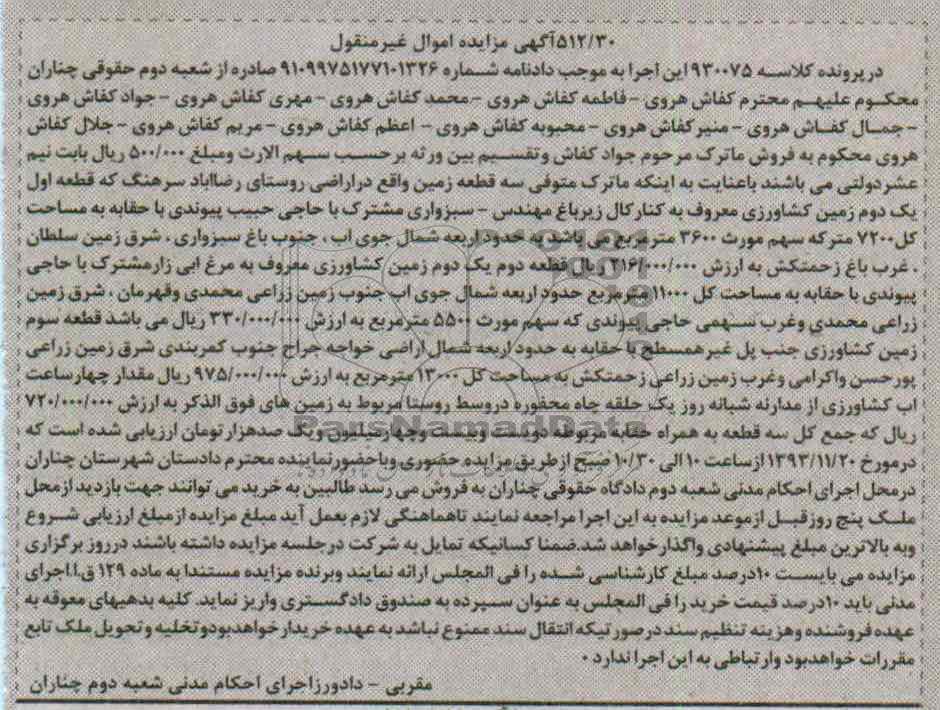 ۵۱۲/۳۰آگهی مزایده اموال غیرمنقول
درپرونده کلاسه ۹۳۰۰۷۵ این اجرا به موجب دادنامه شماره ۹۱۰۹۹۷۵۱۷۷۱۰۱۳۲۶ صادره از شعبه دوم حقوقی چناران
محکوم علیهم محترم کفاش هروی - فاطمه کفاش هروی -محمد کفاش هروی - مهری کفاش هروی - جواد کفاش هروی
- جمال کفاش هروی - منیرکفاش هروی - محبوبه کفاش هروی - اعظم کفاش هروی - مریم کفاش هروی - جلال کفاش
هروی محکوم به فروش ماترک مرحوم جواد کفاش وتقسیم بین ورثه برحسب سهم الارث ومبلغ ۵۰۰/۰۰۰ ریال بابت نیم
عشردولتی می باشند باعنایت به اینکه ماترک متوفی سه قطعه زمین واقع دراراضی روستای رضااباد سرهنگ که قطعه اول
یک دوم زمین کشاورزی معروف به کنارکال زیرباغ مهندس - سبزواری مشترک با حاجی حبیب پیوندی با حقابه به مساحت
کل۷۲۰۰ مترکه سهم مورث ۳۶۰۰ مترمربع می باشد به حدود اربعه شمال جوی اب ، جنوب باغ سبزواری ، شرق زمین سلطان
، غرب باغ زحمتکش به ارزش ۲۱۶/۰۰۰/۰۰۰ ریال قطعه دوم یک دوم زمین کشاورزی معروف به مرغ ابی زارمشترک با حاجی
پیوندی با حقابه به مساحت کل ۱۱۰۰۰ مترمربع حدود اربعه شمال جوی اب جنوب زمین زراعی محمدی وقهرمان ، شرق زمین
زراعی محمدی وغرب سهمی حاجی پیوندی که سهم مورث ۵۵۰۰ مترمربع به ارزش ۳۳۰/۰۰۰/۰۰۰ ریال می باشد قطعه سوم
زمین کشاورزی جنب پل غیرهمسطح با حقابه به حدود اربعه شمال اراضی خواجه جراح جنوب کمربندی شرق زمین زراعی
پورحسن واکرامی وغرب زمین زراعی زحمتکش به مساحت کل ۱۳۰۰۰ مترمربع به ارزش ۹۷۵/۰۰۰/۰۰۰ ریال مقدار چهارساعت
اب کشاورزی از مدارنه شبانه روز یک حلقه چاه محفوره دروسط روستا مربوط به زمین های فوق الذکر به ارزش ۷۲۰/۰۰۰/۰۰۰
ریال که جمع کل سه قطعه به همراه حقابه مربوطه دویست وبیست وچهارمیلیون ویک صدهزارتومان ارزیابی شده است که
درمورخ ۱۳۹۳/۱۱/۲۰ ازساعت ۱۰ الی ۱۰/۳۰ صبح ازطریق مزایده حضوری وباحضورنماینده محترم دادستان شهرستان چناران
درمحل اجرای احکام مدنی شعبه دوم دادگاه حقوقی چناران به فروش می رسد طالبین به خرید می توانند جهت بازدید ازمحل
ملک پنج روزقبل ازموعد مزایده به این اجرا مراجعه نمایند تاهماهنگی لازم بعمل آید مبلغ مزایده ازمبلغ ارزیابی شروع
وبه بالاترین مبلغ پیشنهادی واگذارخواهد شد.ضمنا کسانیکه تمایل به شرکت درجلسه مزایده داشته باشند درروز برگزاری
مزایده می بایست ۱۰درصد مبلغ کارشناسی شده را فی المجلس ارائه نمایند وبرنده مزایده مستندا به ماده ۱۲۹ ق.ا.اجرای
مدنی باید ۱۰درصد قیمت خرید را فی المجلس به عنوان سپرده به صندوق دادگستری واریز نماید. کلیه بدهیهای معوقه به
عهده فروشنده وهزینه تنظیم سند درصورتیکه انتقال سند ممنوع نباشد به عهده خریدارخواهدبودوتخلیه وتحویل ملک تابع
مقررات خواهدبود وارتباطی به این اجرا ندارد ۰
مقربی - دادورزاجرای احکام مدنی شعبه دوم چناران
ParsNamadData